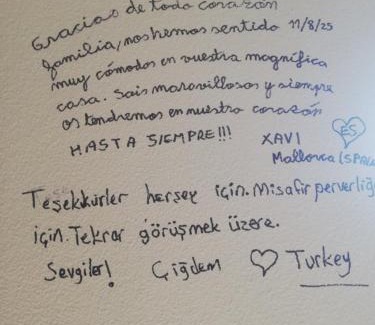 Gracias de todo corazón
familia, nos hemos sentido 11/8/25
muy cómodos en vuestra magnífica
casa. Sois maravillosos y siempre
os tendremos en nuestro corazón
HASTA SIEMPRE!!! XAVI ES
Mallorca (SPAIN
Teşekkürler herşey için. Misafirperverliğ
için. Tekrar görüşmek üzere.
Sevgiler! Çiğdem ♡ Turkey